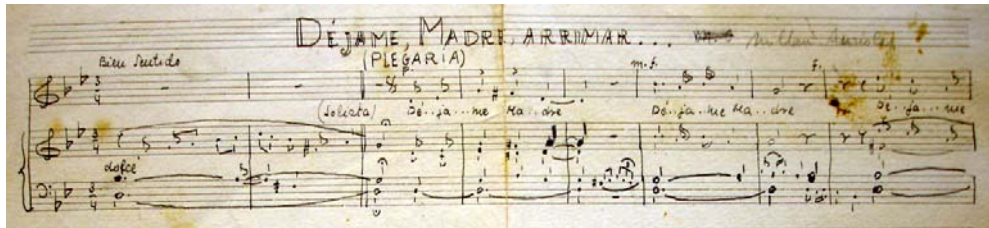 DÉJAME, MADRE, ARRIMAR...
(PLEGARIA)
Bien Sentido
p.
m.f.
f.
(Solista) Dé..ja..me Ma..dre Dé..ja..me Ma..dre Dé..ja..me
dolce